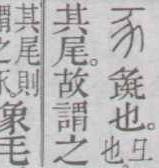 豕彘也。曰
也
其尾。故謂之
其尾則
謂之豕象毛